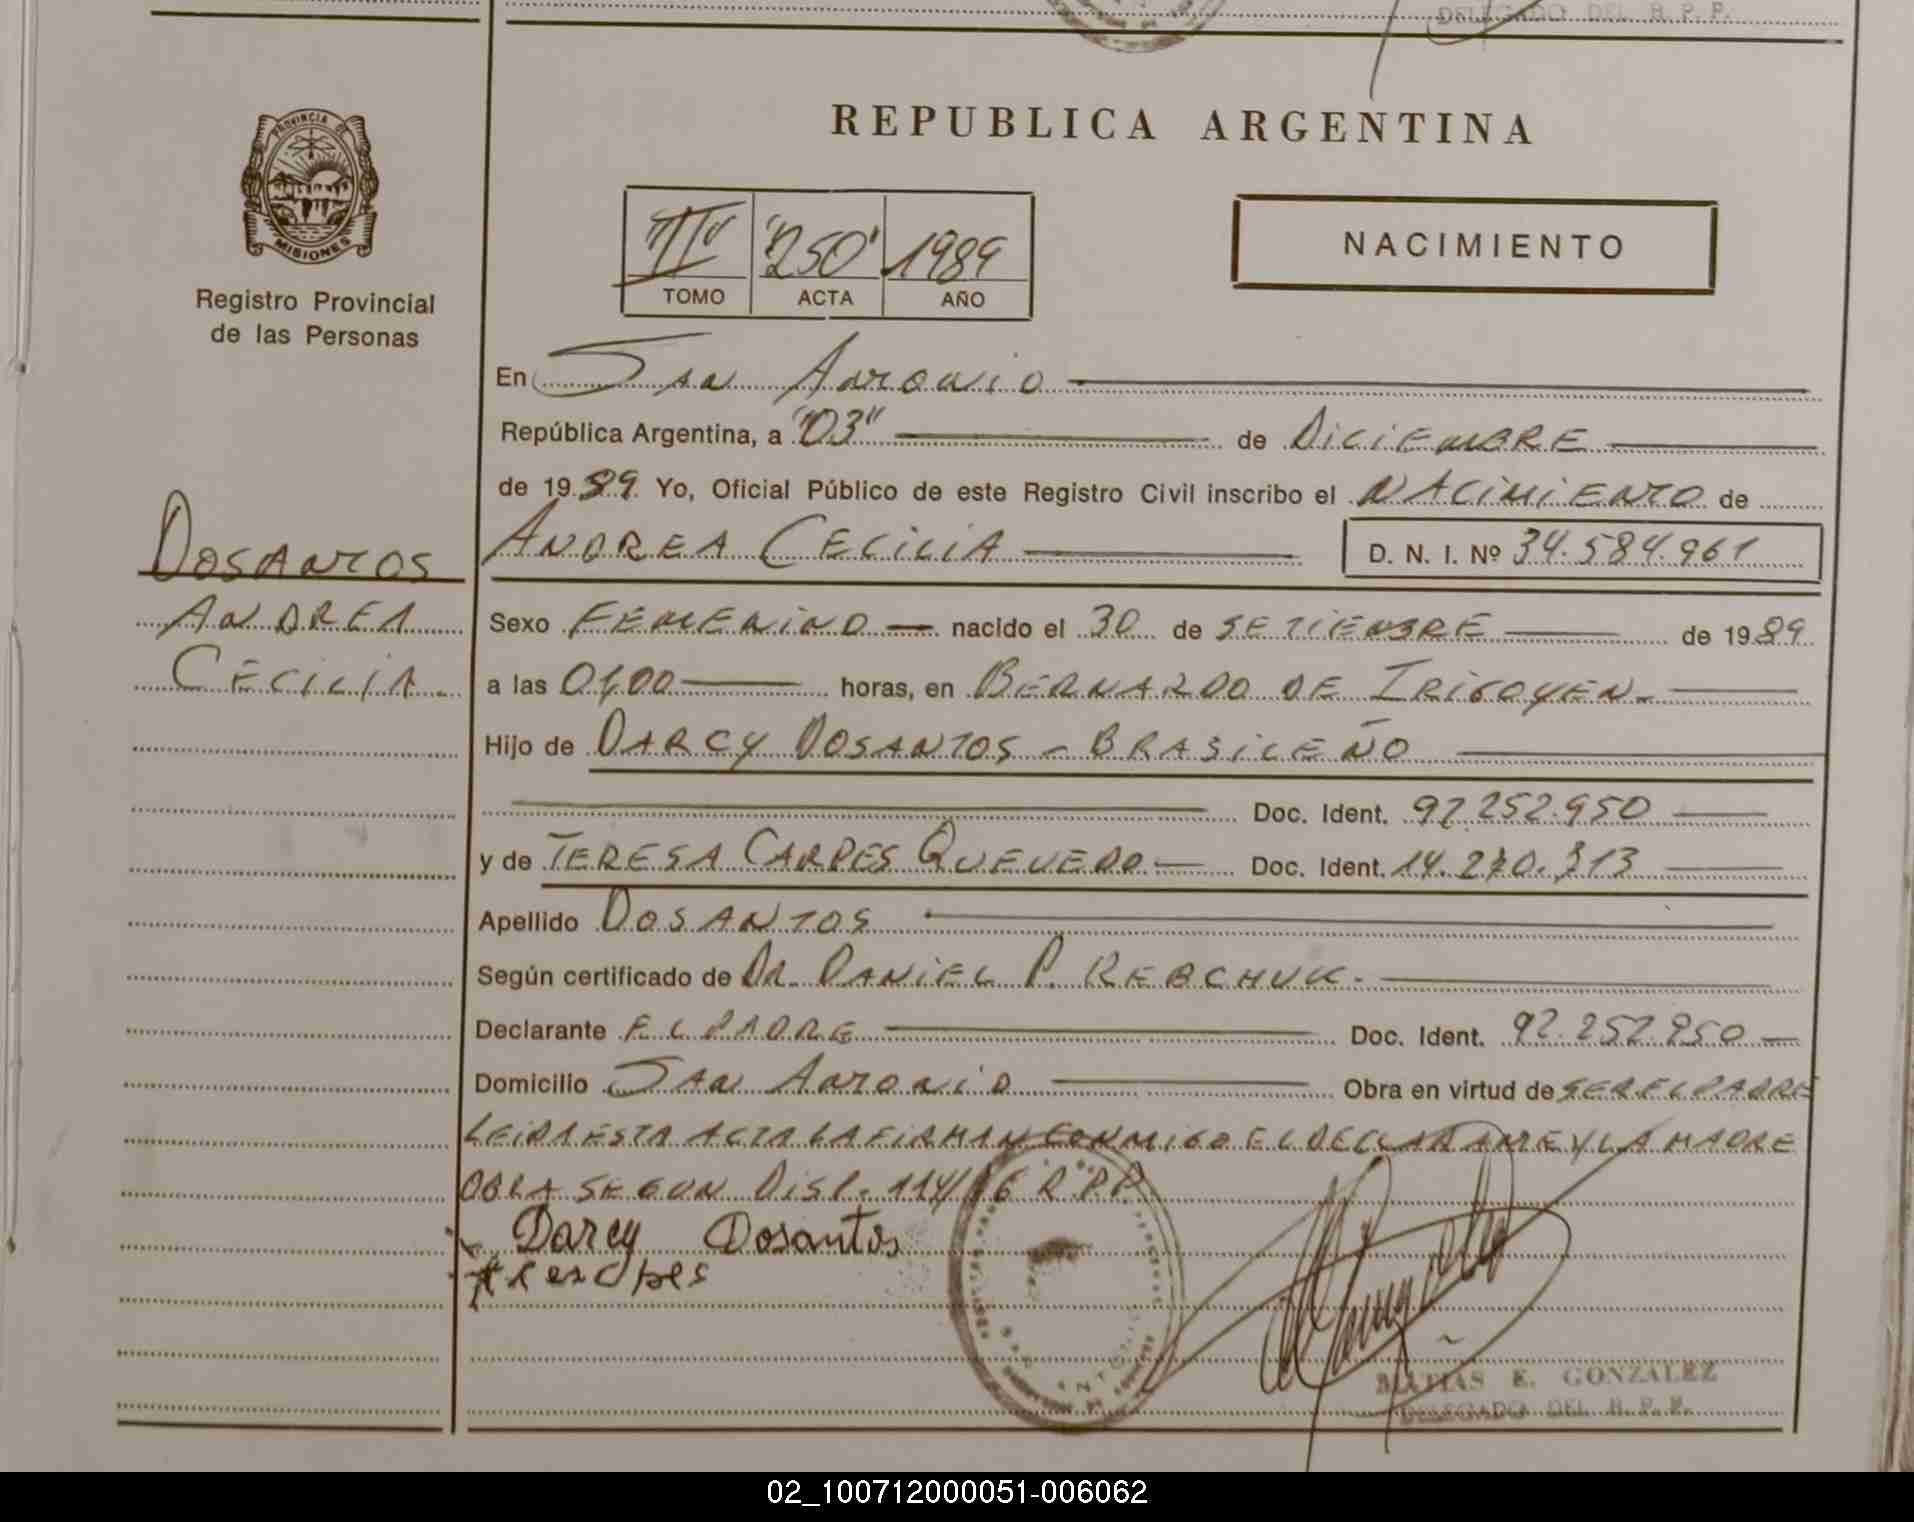 DELEGADO DEL R. P. P.
PROVINCIA DE
MISIONES
Registro Provincial
de las Personas
REPUBLICA ARGENTINA
"II" "250" 1989
TOMO ACTA AÑO
NACIMIENTO
En San Antonio
República Argentina, a "03" de DiCiEMBRE
de 1989. Yo, Oficial Público de este Registro Civil inscribo el NACiMiENTO de
DOSANTOS
ANDREA CECiLiA D. N. I. Nº 34.584.961
ANDREA
Sexo FEMENiNO nacido el 30 de SETiEMBRE de 1989
CECiLiA.
a las 01,00 horas, en BERNARDO DE IRiGOYEN.
Hijo de DARCY DOSANTOS - BRASiLEÑO
Doc. Ident. 92.252.950
y de TERESA CARPES QUEVEDO Doc. Ident. 14.270.313
Apellido DOSANTOS
Según certificado de DR. DANiEL P. REBCHUK.
Declarante EL PADRE Doc. Ident. 92.252.950
Domicilio SAN ANTONiO Obra en virtud de SER EL PADRE
LEiDA ESTA ACTA LA FiRMAN CONMiGO EL DECLARANTE Y LA MADRE
OBLA SEGUN DiSP. 114/86 R.P.P.
Darcy Dosantos
MATIAS E. GONZALEZ
DELEGADO DEL R. P. P.
02_100712000051-006062